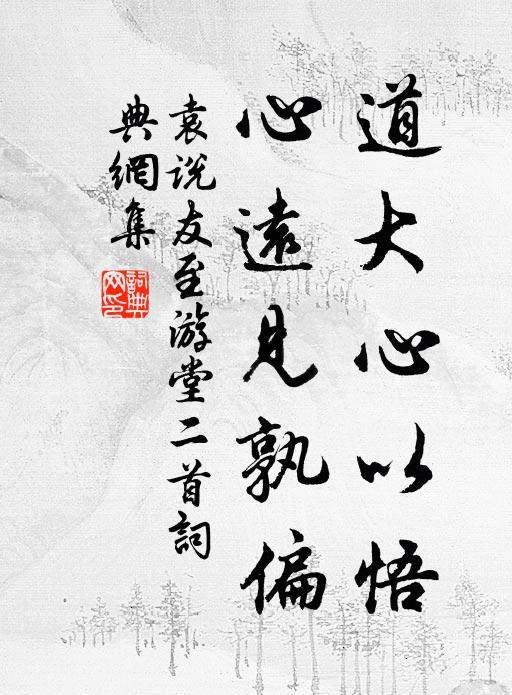 道大心以悟
心遠見孰偏
袁說友至游堂二首詞
典網集
詞典
网印